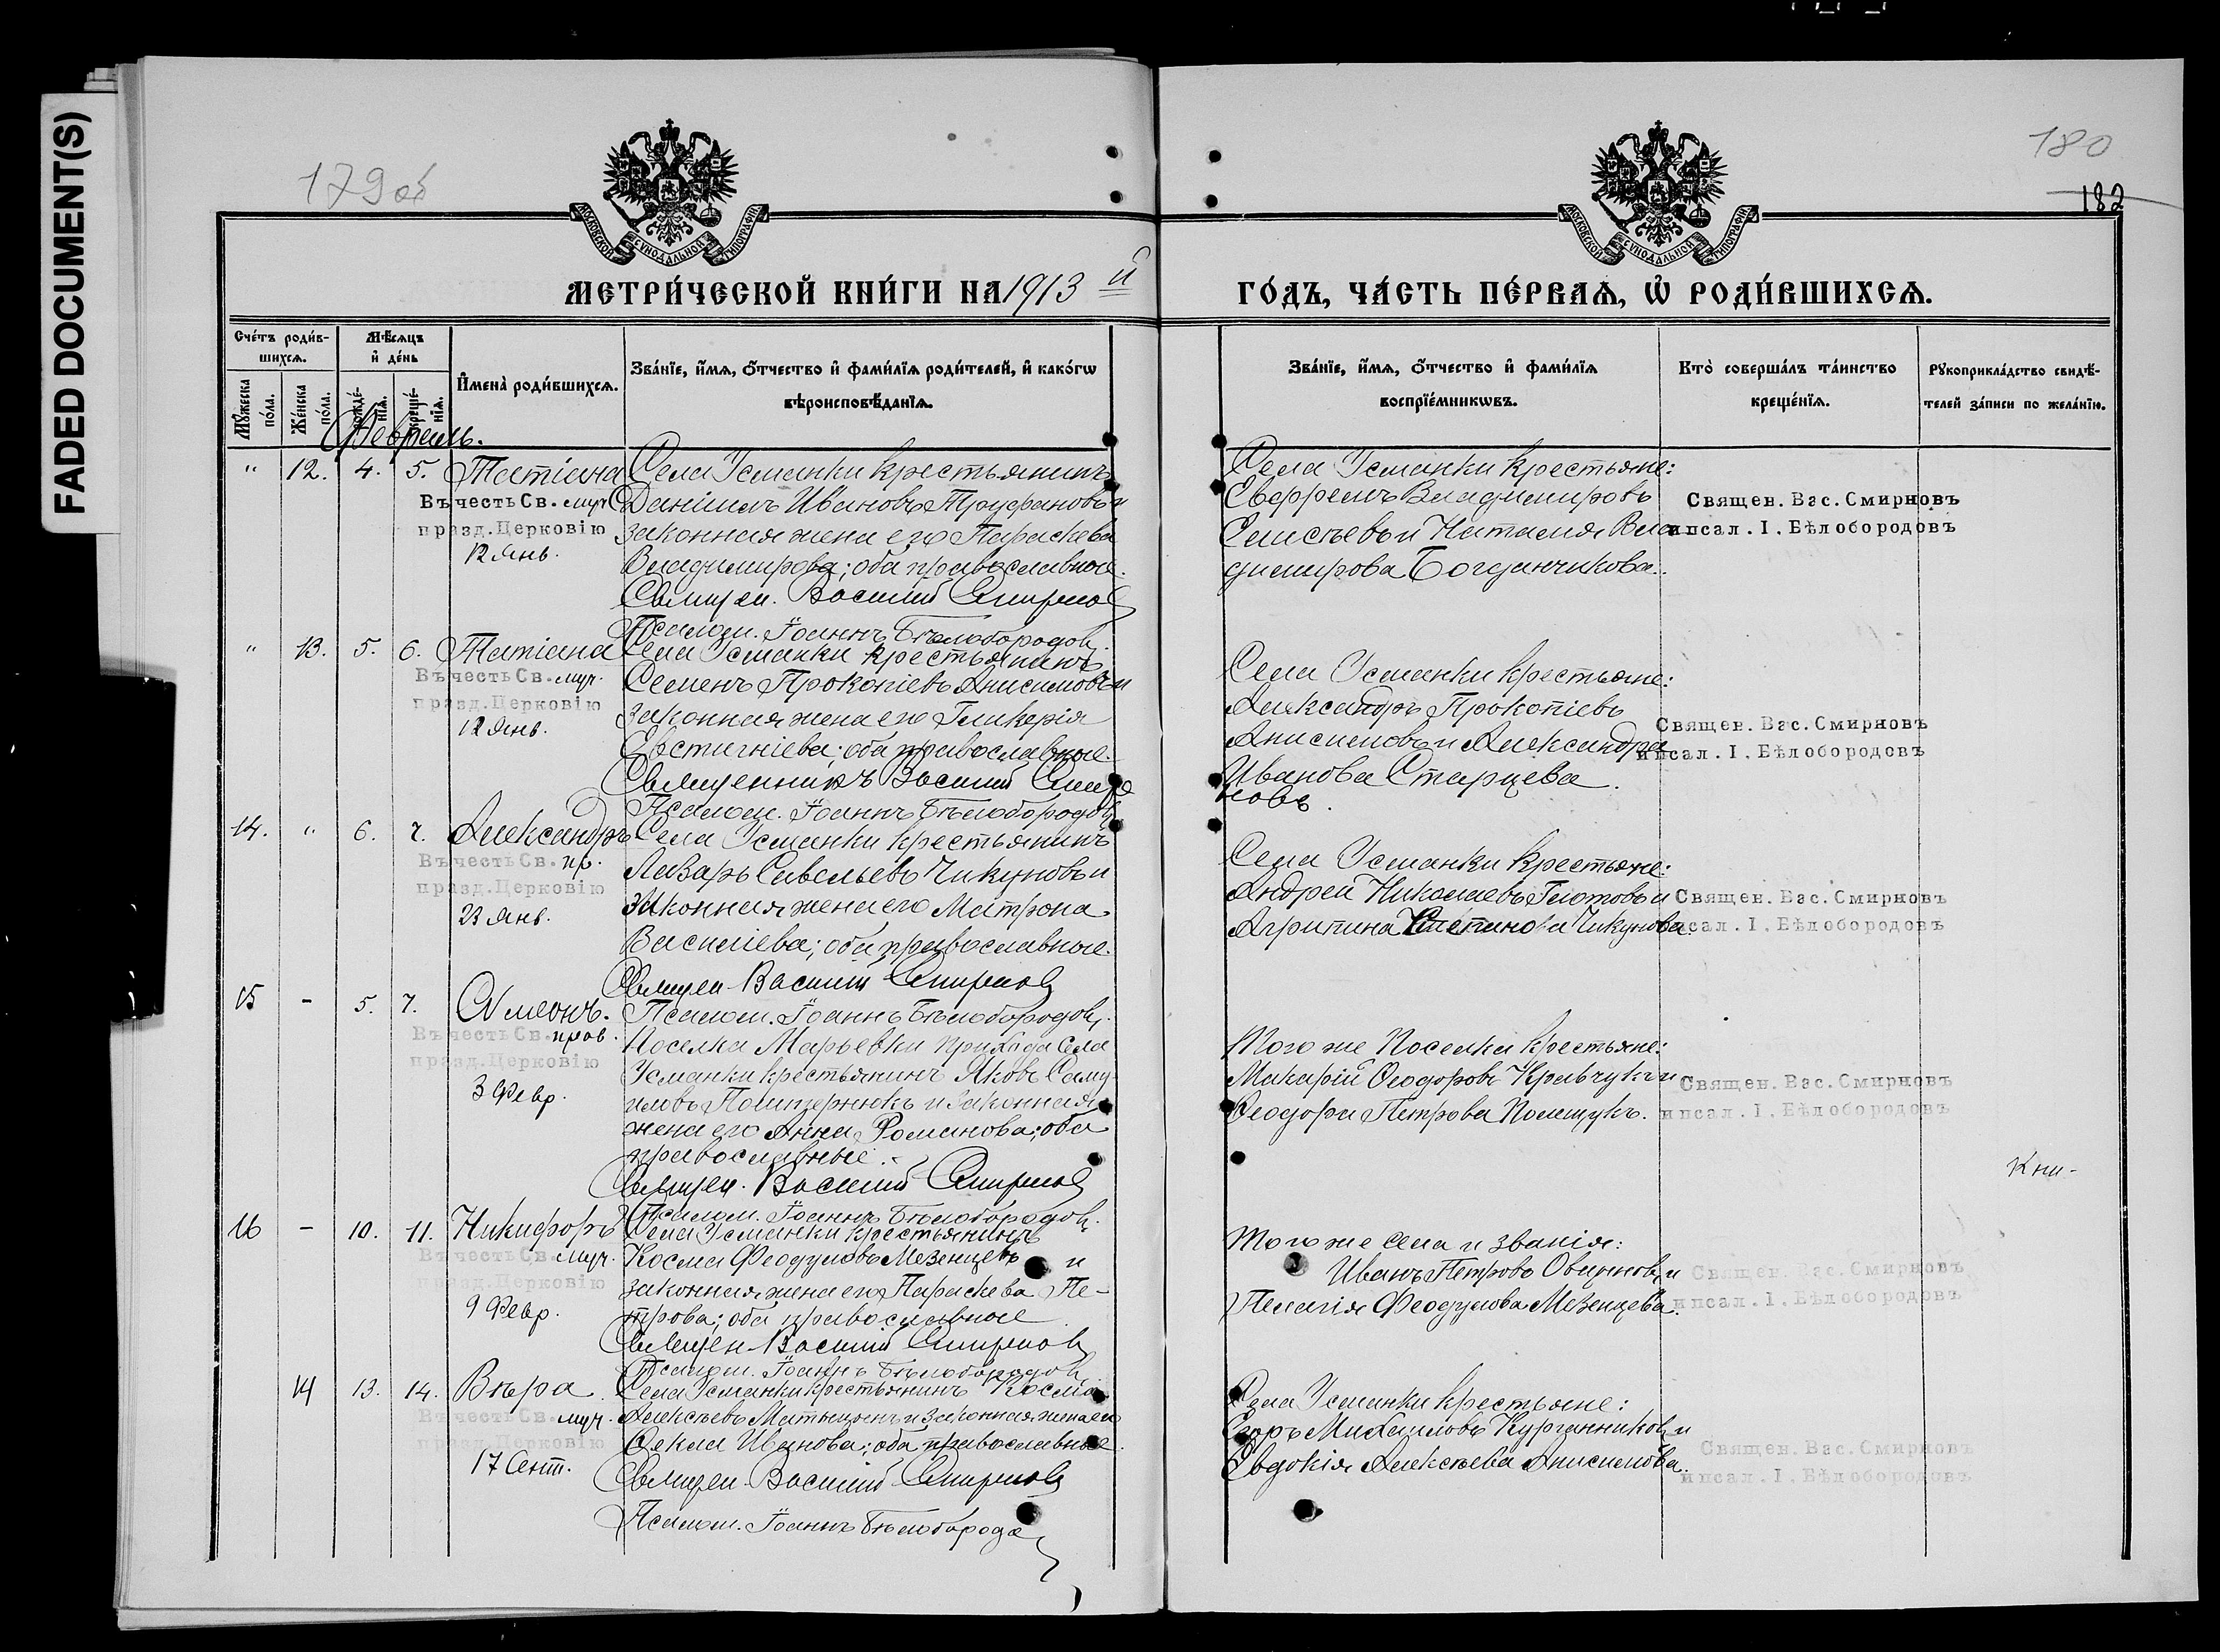 FADED DOCUMENT(S)
179 об
180
182
МОСКОВСКОЙ СѴНОДАЛЬНОЙ ТИПОГРАФІИ
МОСКОВСКОЙ СѴНОДАЛЬНОЙ ТИПОГРАФІИ
МЕТРИ́ЧЕСКОЙ КНИ́ГИ НА 1913 й
ГО́ДЪ, ЧА́СТЬ ПЕ́РВАѦ, Ѽ РОДИ́ВШИХСѦ.
Сче́тъ роди́в-
шихсѧ.
Мꙋ́жеска
по́ла.
Же́нска
по́ла.
Мѣ́сѧцъ
и҆ де́нь
рожде́-
нїѧ.
креще́-
нїѧ.
И҆мена̀ роди́вшихсѧ.
Зва́нїе, и҆́мѧ, ѻ҆́тчество и҆ фами́лїѧ роди́телей, и҆ како́гѡ
вѣроисповѣ́данїѧ.
Зва́нїе, и҆́мѧ, ѻ҆́тчество и҆ фами́лїѧ
воспрїе́мникѡвъ.
Кто̀ соверша́лъ та́инство
креще́нїѧ.
Рꙋкоприкла́дство свидѣ́-
телей за́писи по жела́нїю.
Февраль.
" 12. 4. 5. Татіана
Въ честь Св. муч
празд. Церковію
12 Янв.
Села Усманки крестьянинъ
Даніилъ Ивановъ Труфановъ и
законная жена его Параскева
Владимирова; оба православные.
Священ. Василий Смирнов
Псалом. Іоаннъ Бѣлобородов.
Села Усманки крестьяне:
Евфремъ Владимировъ
Елисѣевъ и Наталия Вла
димирова Богданчикова.
Священ. Вас. Смирновъ
и псал. І. Бѣлобородовъ
" 13. 5. 6. Татіана
Въ честь Св. муч.
празд. Церковію
12 Янв.
Села Усманки крестьянинъ
Семенъ Прокопіевъ Анисимовъ и
законная жена его Гликерія
Евстигніева; оба православные.
Священникъ Василий Смир
новъ.
Псалом. Іоаннъ Бѣлобородов
Села Усманки крестьяне:
Александръ Прокопіевъ
Анисимовъ и Александра
Иванова Старцева.
Священ. Вас. Смирновъ
и псал. І. Бѣлобородовъ
14. " 6. 7. Александръ
Въ честь Св. пр.
празд. Церковію
23 Янв.
Села Усманки крестьянинъ
Лазарь Савельевъ Чикуновъ и
законная жена его Матрона
Василіева; оба православные.
Священ. Василий Смирнов
Псалом. Іоаннъ Бѣлобородов.
Села Усманки крестьяне:
Андрей Николаевъ Глотовъ и
Агрипина Чикунова
Священ. Вас. Смирновъ
и псал. І. Бѣлобородовъ
15 - 5. 7. Сѵмеонъ.
Въ честь Св. прав.
празд. Церковію
3 Февр.
Поселка Марьевки прихода села
Усманки крестьянинъ Яковъ Саму
иловъ и законная
жена его Анна Романова; оба
православные.
Священ. Василий Смирнов
Псалом. Іоаннъ Бѣлобородов.
Того же поселка крестьяне:
Макарій Ѳеодоровъ Кравчукъ и
Ѳеодора Петрова Полещукъ.
Священ. Вас. Смирновъ
и псал. І. Бѣлобородовъ
Кни-
16 - 10. 11. Никифоръ
Въ честь Св. муч.
празд. Церковію
9 Февр.
Села Усманки крестьянинъ
Косма Феодуловъ Мезенцевъ и
законная жена его Параскева Пе-
трова; оба православные.
Священ. Василий Смирнов
Псалом. Іоаннъ Бѣлобородов.
Того же села и званія:
Иванъ Петровъ Овчинников и
Пелагія Феодулова Мезенцева.
Священ. Вас. Смирновъ
и псал. І. Бѣлобородовъ
14 13. 14. Вѣра
Въ честь Св. муч.
празд. Церковію
17 Сент.
Села Усманки крестьянинъ Косма
Алексѣевъ и законная жена его
Ѳекла Иванова; оба православные.
Священ. Василий Смирнов
Псалом. Іоаннъ Бѣлобородов
Села Усманки крестьяне:
Егоръ Михаиловъ Курганников и
Евдокія Алексѣева Анисимова.
Священ. Вас. Смирновъ
и псал. І. Бѣлобородовъ